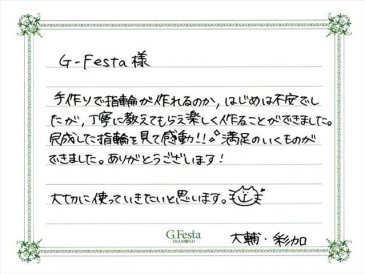 G-Festa 様
手作りで指輪が作れるのか、はじめは不安でし
たが、丁寧に教えてもらえ楽しく作ることができました。
完成した指輪を見て感動!! 満足のいくものが
できました。ありがとうございます!
大切に使っていきたいと思います。
G.Festa
DIAMOND
大輔・彩加